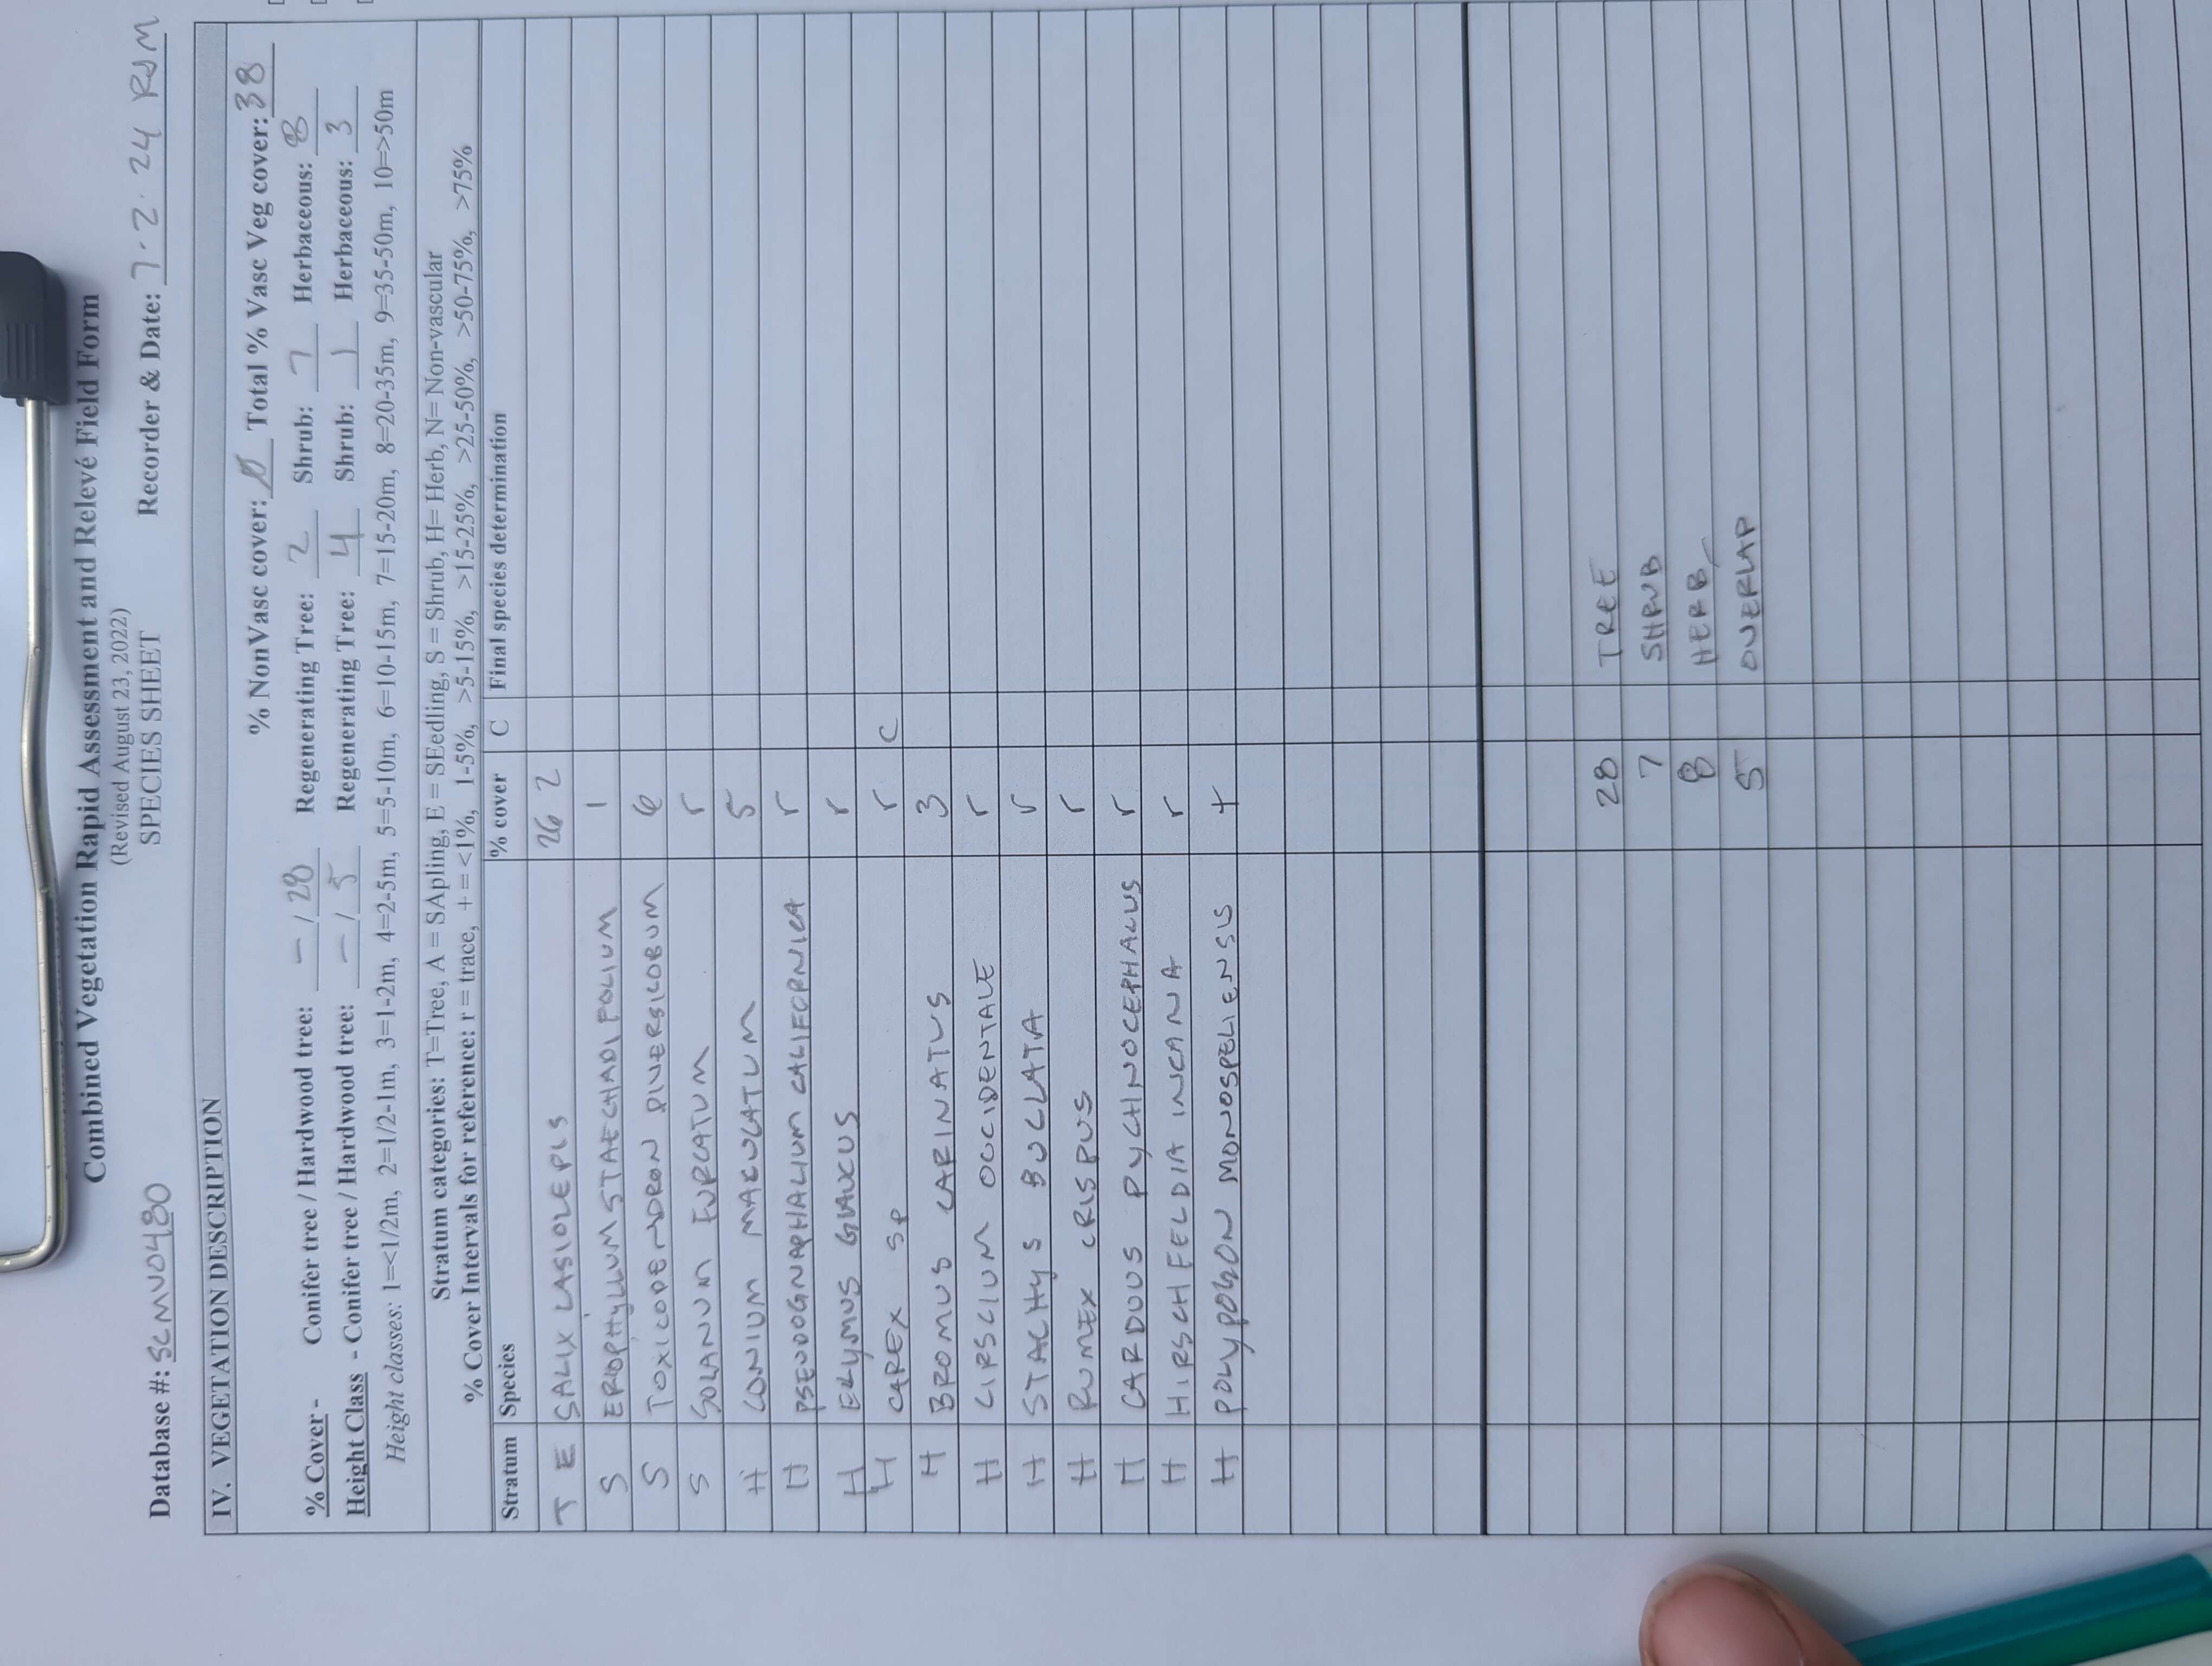 Combined Vegetation Rapid Assessment and Relevé Field Form
(Revised August 23, 2022)
SPECIES SHEET
Database #: SCMV0480 Recorder & Date: 7.2.24 RJM
IV. VEGETATION DESCRIPTION
% NonVasc cover: Ø Total % Vasc Veg cover: 38
% Cover - Conifer tree / Hardwood tree: — / 28 Regenerating Tree: 2 Shrub: 7 Herbaceous: 8
Height Class - Conifer tree / Hardwood tree: — / 5 Regenerating Tree: 4 Shrub: 1 Herbaceous: 3
Height classes: 1=<1/2m, 2=1/2-1m, 3=1-2m, 4=2-5m, 5=5-10m, 6=10-15m, 7=15-20m, 8=20-35m, 9=35-50m, 10=>50m
Stratum categories: T=Tree, A = SApling, E = SEedling, S = Shrub, H= Herb, N= Non-vascular
% Cover Intervals for reference: r = trace, + = <1%, 1-5%, >5-15%, >15-25%, >25-50%, >50-75%, >75%
Stratum Species % cover C Final species determination
T E SALIX LASIOLEPIS 26 2
S ERIOPHYLLUM STAECHADIFOLIUM 1
S TOXICODENDRON DIVERSILOBUM 6
S SOLANUM FURCATUM r
H CONIUM MACULATUM 5
H PSEUDOGNAPHALIUM CALIFORNICA r
H ELYMUS GLAUCUS r
H CAREX SP r C
H BROMUS CARINATUS 3
H CIRSCIUM OCCIDENTALE r
H STACHYS BUCLATA r
H RUMEX CRISPUS r
H CARDUUS PYCHNOCEPHALUS r
H HIRSCHFELDIA INCANA r
H POLYPOGON MONOSPELIENSIS +
28 TREE
7 SHRUB
8 HERB
5 OVERLAP